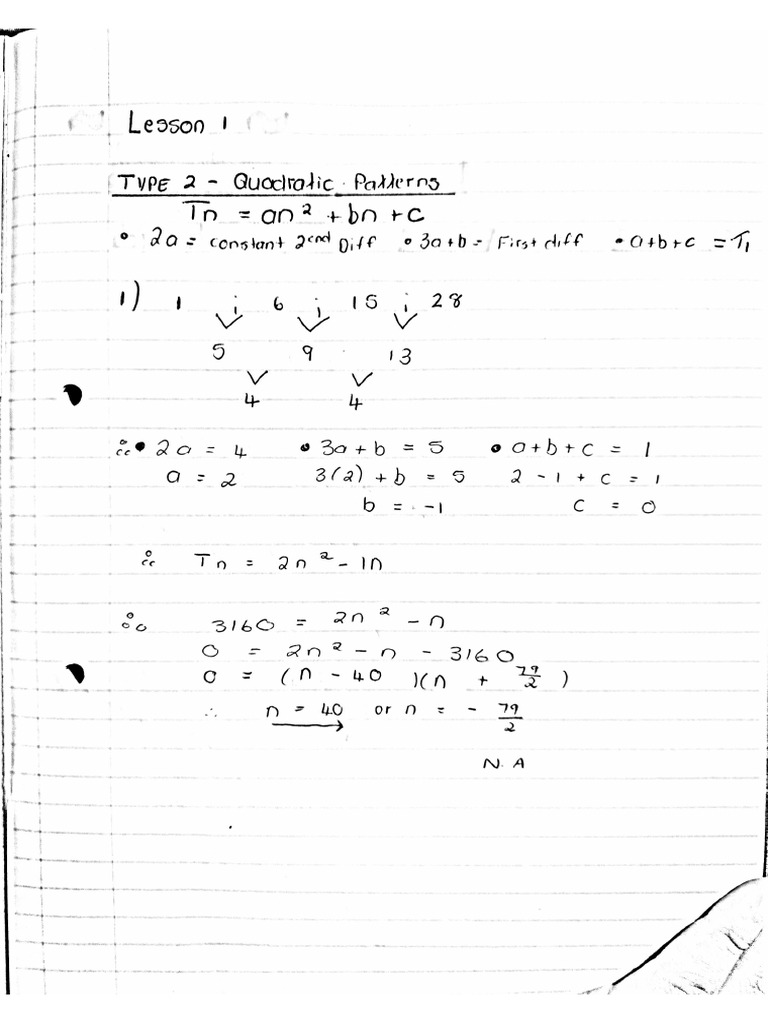 Lesson 1
TYPE 2 - Quadratic Patterns
Tn = an² + bn + c
• 2a = constant 2nd Diff • 3a+b = First diff • a+b+c = T₁
1) 1 ; 6 ; 15 ; 28
5 9 13
4 4
∴ • 2a = 4 • 3a + b = 5 • a+b+c = 1
a = 2 3(2) + b = 5 2 - 1 + c = 1
b = -1 c = 0
∴ Tn = 2n² - 1n
∴ 3160 = 2n² - n
0 = 2n² - n - 3160
0 = (n - 40)(n + 79/2)
∴ n = 40 or n = - 79/2
N.A